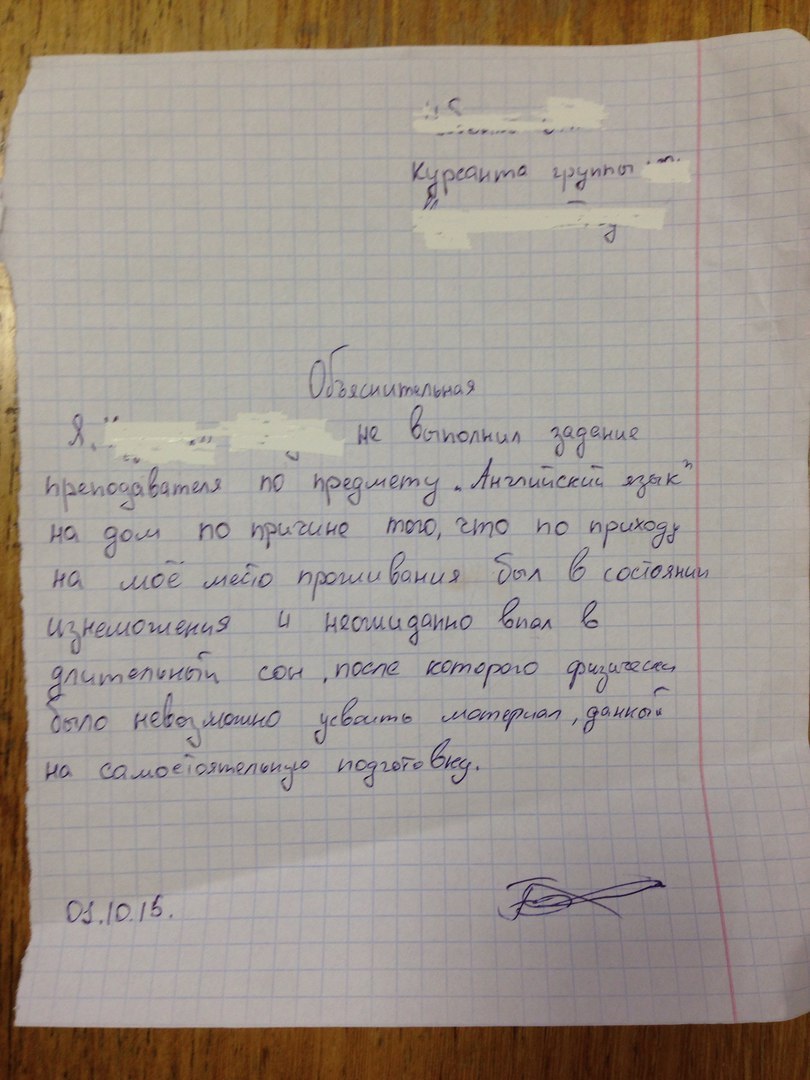 Курсанта группы
Объяснительная
Я, не выполнил задание
преподавателя по предмету „Английский язык"
на дом по причине того, что по приходу
на моё место проживания был в состоянии
изнеможения и неожиданно впал в
длительный сон, после которого физически
было невозможно усвоить материал, данный
на самостоятельную подготовку.
01.10.15.